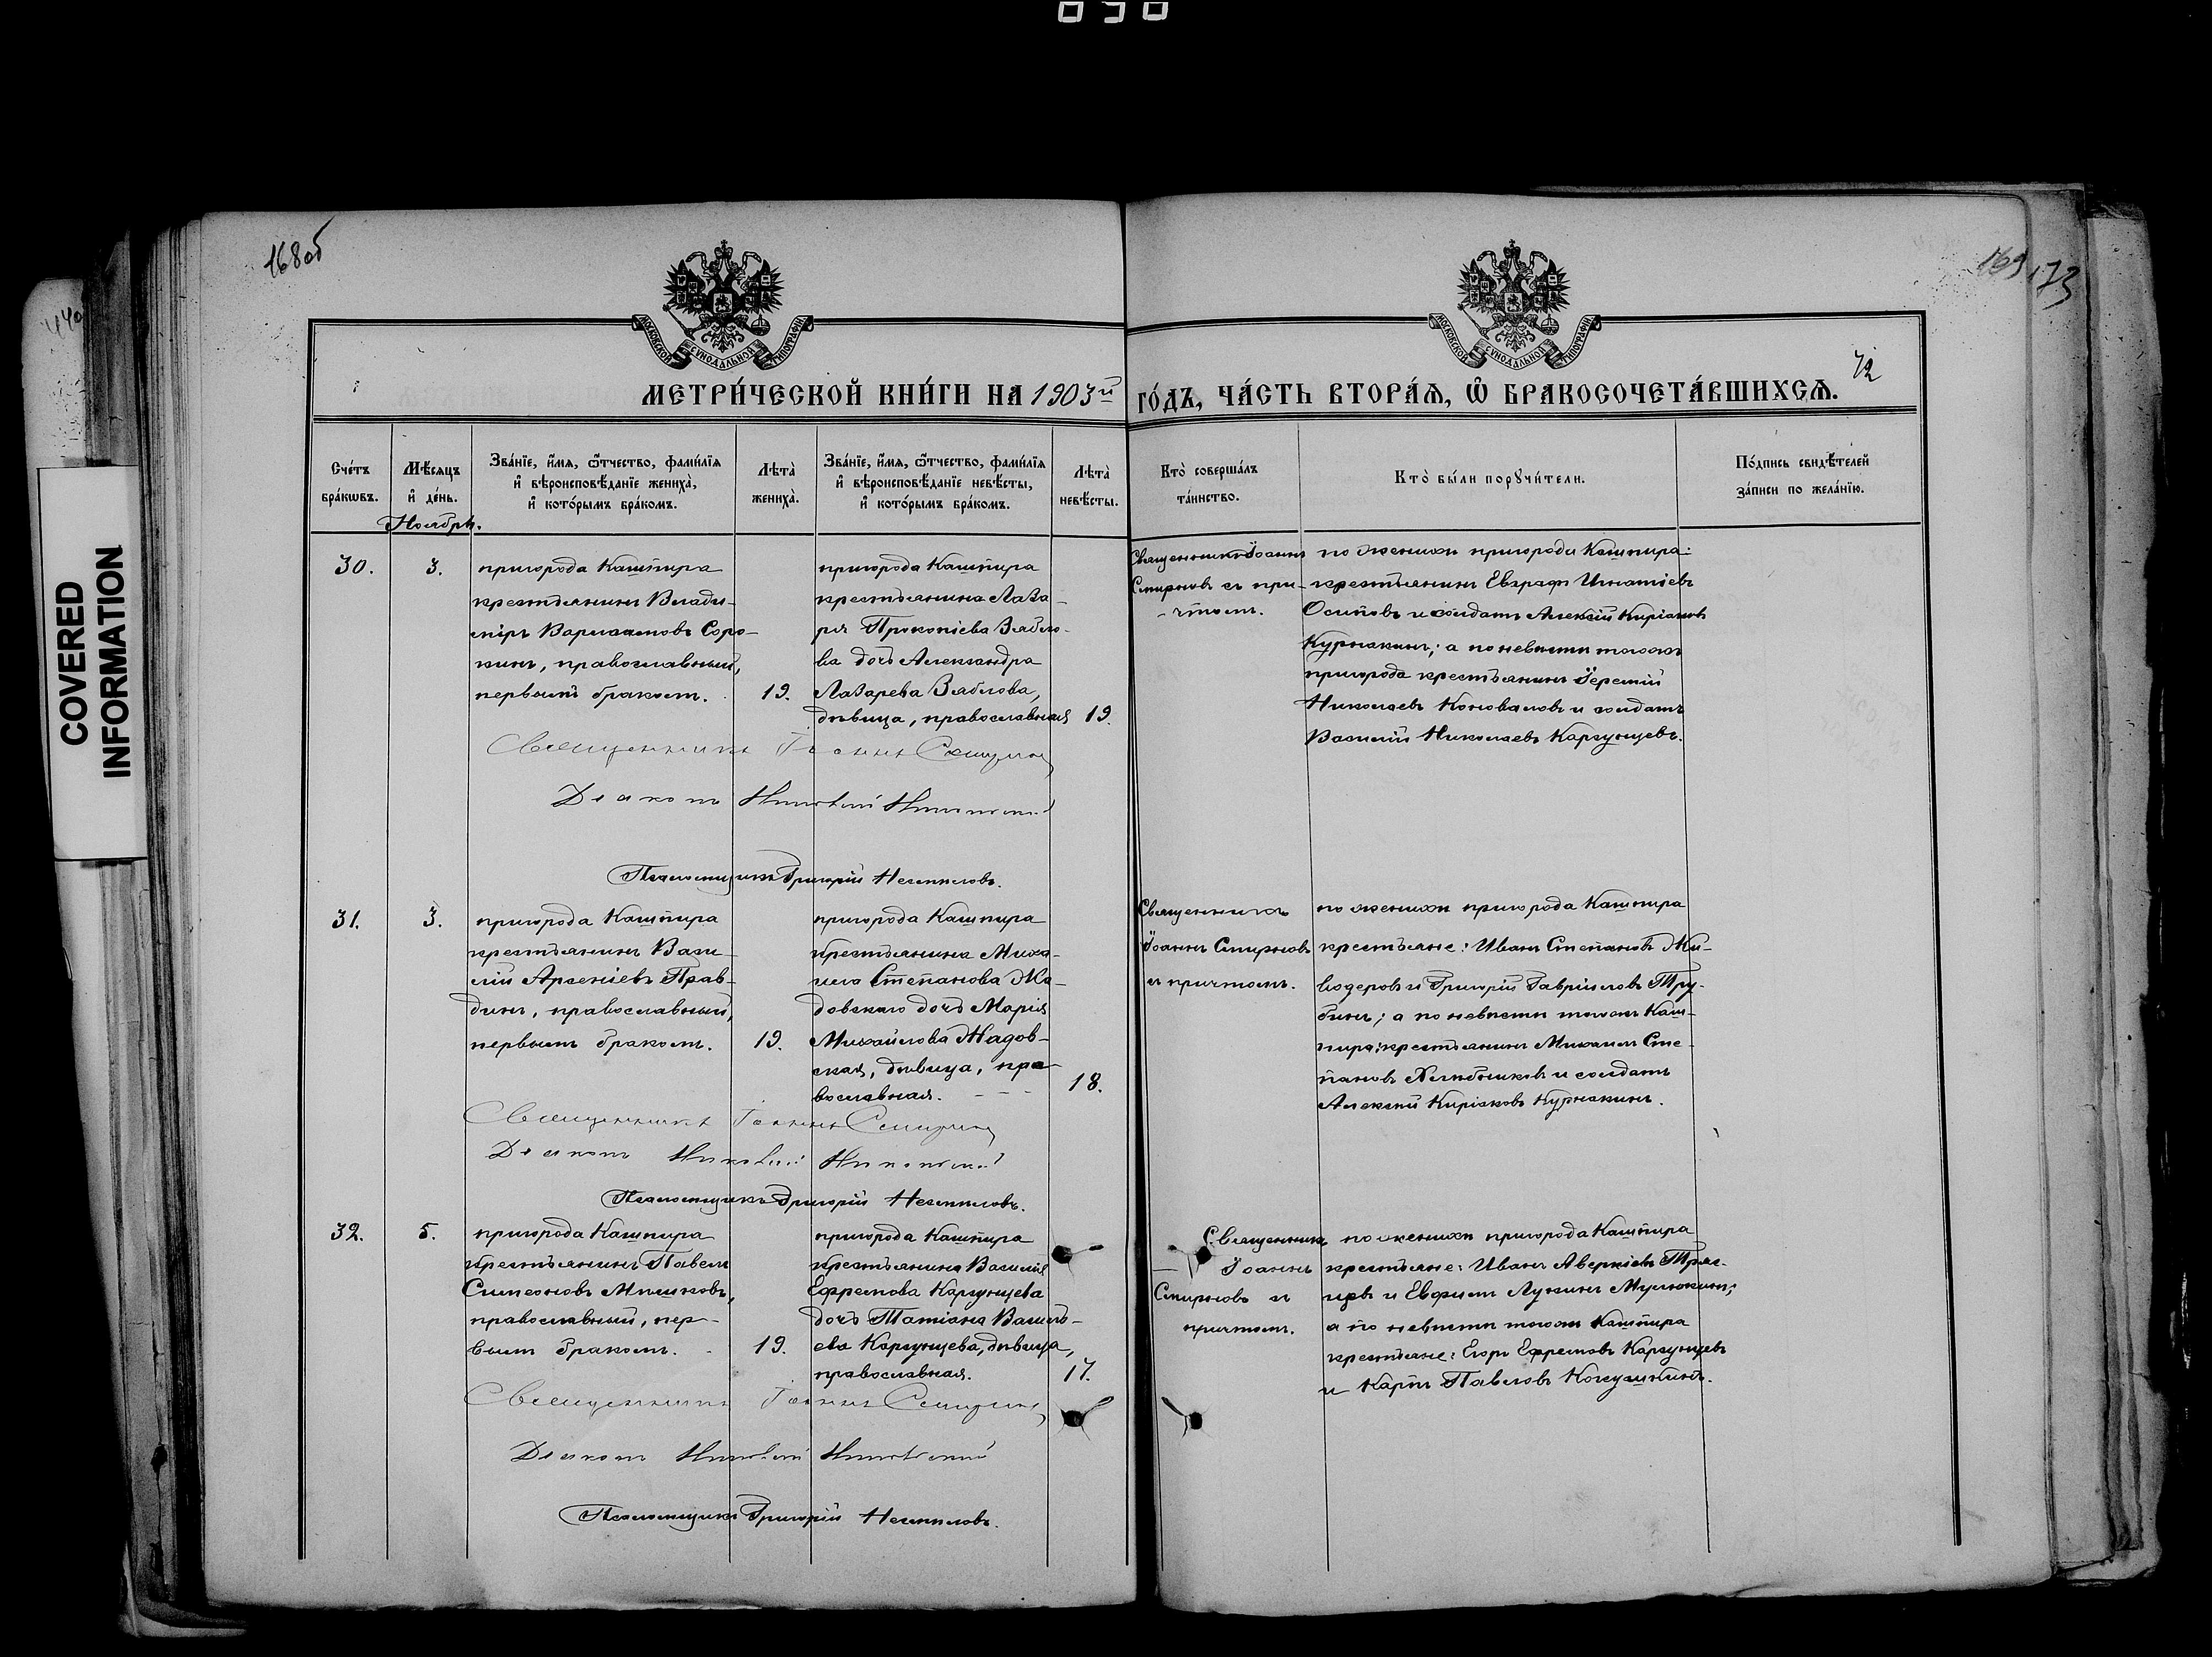 COVERED
INFORMATION
168об
169
173
72
МОСКОВСКОЙ СУНОДАЛЬНОЙ ТИПОГРАФІИ
МОСКОВСКОЙ СУНОДАЛЬНОЙ ТИПОГРАФІИ
МЕТРИ́ЧЕСКОЙ КНИ́ГИ НА 1903й ГО́ДЪ, ЧА́СТЬ ВТОРА́Ѧ, Ѽ БРАКОСОЧЕТА́ВШИХСѦ.
Сче́тъ бра́кωвъ.
Мѣ́сяцъ и҆ де́нь.
Зва́нїе, и҆́мя, ѻ҆́тчество, фами́лїя
и҆ вѣроисповѣ́данїе жениха̀,
и҆ кото́рымъ бра́комъ.
Лѣта̀ жениха̀.
Зва́нїе, и҆́мя, ѻ҆́тчество, фами́лїя
и҆ вѣроисповѣ́данїе невѣ́сты,
и҆ кото́рымъ бра́комъ.
Лѣта̀ невѣ́сты.
Кто̀ соверша́лъ та́инство.
Кто̀ бы́ли порꙋчи́тели.
По́дпись свидѣ́телей за́писи по жела́нїю.
Ноябрь.
30.
3.
пригорода Кашпира
крестьянинъ Влади-
міръ Варлаамовъ Соро-
кинъ, православный,
первымъ бракомъ.
19.
пригорода Кашпира
крестьянина Лаза-
ря Прокопіева Зябло-
ва дочь Александра
Лазарева Зяблова,
дѣвица, православная
19.
Священникъ Іоаннъ
Смирновъ съ при-
чтомъ.
по женихѣ пригорода Кашпира:
крестьянинъ Евграфъ Игнатіевъ
Осиповъ и солдатъ Алексій Киріаковъ
Курнакинъ; а по невѣстѣ тогожъ
пригорода крестьянинъ Іеремій
Николаевъ Коноваловъ и солдатъ
Василій Николаевъ Каргунцевъ.
Священникъ Іоаннъ Смирнов
Діаконъ
Псаломщикъ Григорій Несмѣловъ.
31.
3.
пригорода Кашпира
крестьянинъ Васи-
лій Арсеніевъ Прав-
динъ, православный,
первымъ бракомъ.
19.
пригорода Кашпира
крестьянина Миха-
ила Степанова Жа-
довскаго дочь Марія
Михайлова Жадов-
ская, дѣвица, пра-
вославная.
18.
Священникъ
Іоаннъ Смирновъ
съ причтомъ.
по женихѣ пригорода Кашпира
крестьяне: Иванъ Степановъ Жи-
водеровъ и Григорій Гавріиловъ Тру-
бинъ; а по невѣстѣ тогожъ Каш-
пира: крестьянинъ Михаилъ Сте-
пановъ Хлѣбниковъ и солдатъ
Алексій Киріаковъ Курнакинъ.
Священникъ Іоаннъ Смирнов
Діаконъ
Псаломщикъ Григорій Несмѣловъ.
32.
5.
пригорода Кашпира
крестьянинъ Павелъ
Симеоновъ Мишковъ,
православный, пер-
вымъ бракомъ.
19.
пригорода Кашпира
крестьянина Василія
Ефремова Каргунцева
дочь Татіана Василь-
ева Каргунцева, дѣвица,
православная.
17.
Священникъ
Іоаннъ
Смирновъ съ
причтомъ.
по женихѣ пригорода Кашпира
крестьяне: Иванъ Аверкіевъ
и Евфимъ Лукинъ Мулюкинъ;
а по невѣстѣ тогожъ Кашпира
крестьяне: Егоръ Ефремовъ Каргунцевъ
и Карпъ Павловъ
Священникъ Іоаннъ Смирнов
Діаконъ
Псаломщикъ Григорій Несмѣловъ.